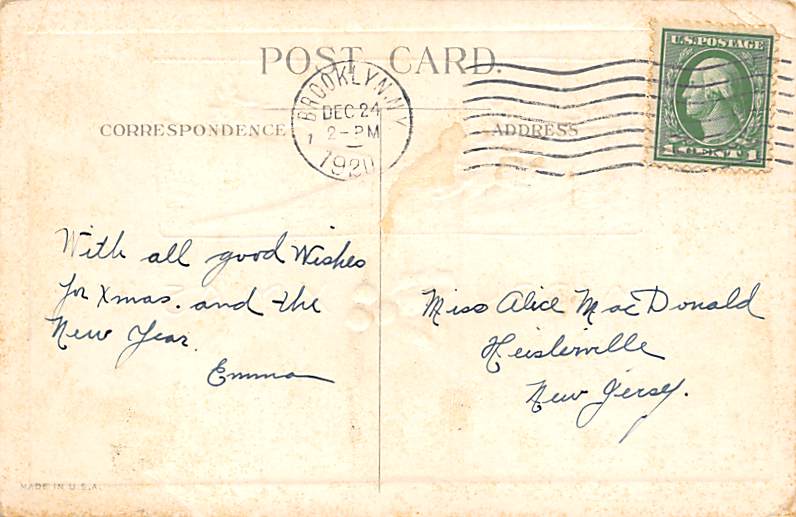 POST CARD.
U.S. POSTAGE
1 CENT 1
BROOKLYN, N.Y.
DEC 24
2-PM
1920
1
CORRESPONDENCE
ADDRESS
With all good Wishes
for Xmas. and the
New Year.
Emma
Miss Alice MacDonald
Heislerville
New Jersey.
MADE IN U.S.A.